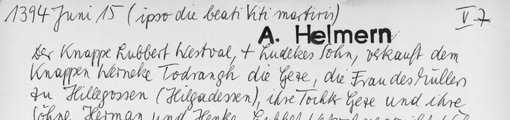 1394 Juni 15 (ipso die beati Viti martiris) V 7
A. Helmern
Der Knappe Lubbert Westval, + Ludekes Sohn, verkauft dem
Knappen Werneke Todrangh die Geze, die Frau des Müllers
zu Hillegossen (Hilgadessen), ihre Tochter Geze und ihre
Söhne Herman und Henke.